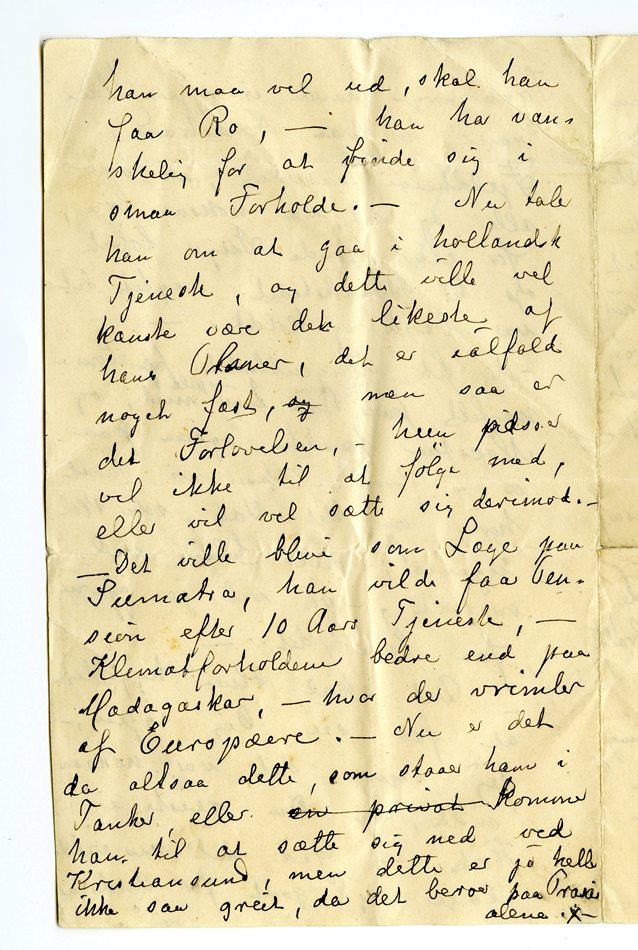 han maa vel ud, skal han
faa Ro, — han har van-
skelig for at finde sig i
smaa Forholde. — Nu taler
han om at gaa i hollandsk
Tjeneste, og dette ville vel
kanske være den likeste af
hans Planer, det er ialfald
noget fast, og men saa er
det Forlovelsen, – hun passer
vel ikke til at følge med,
eller vil vel sætte sig derimod. –
— Det ville blive som Læge paa
Sumatra, han vilde faa Pen-
sion efter 10 Aars Tjeneste, —
Klimatforholdene bedre end paa
Madagaskar, — hvor der vrimler
af Europæere. — Nu er det
da altsaa dette, som staaer ham i
Tanker, eller en privat kommer
han til at sætte sig ned ved
Kristiansund, men dette er jo heller
ikke saa greit, da det beroer paa Praxis
alene. x–